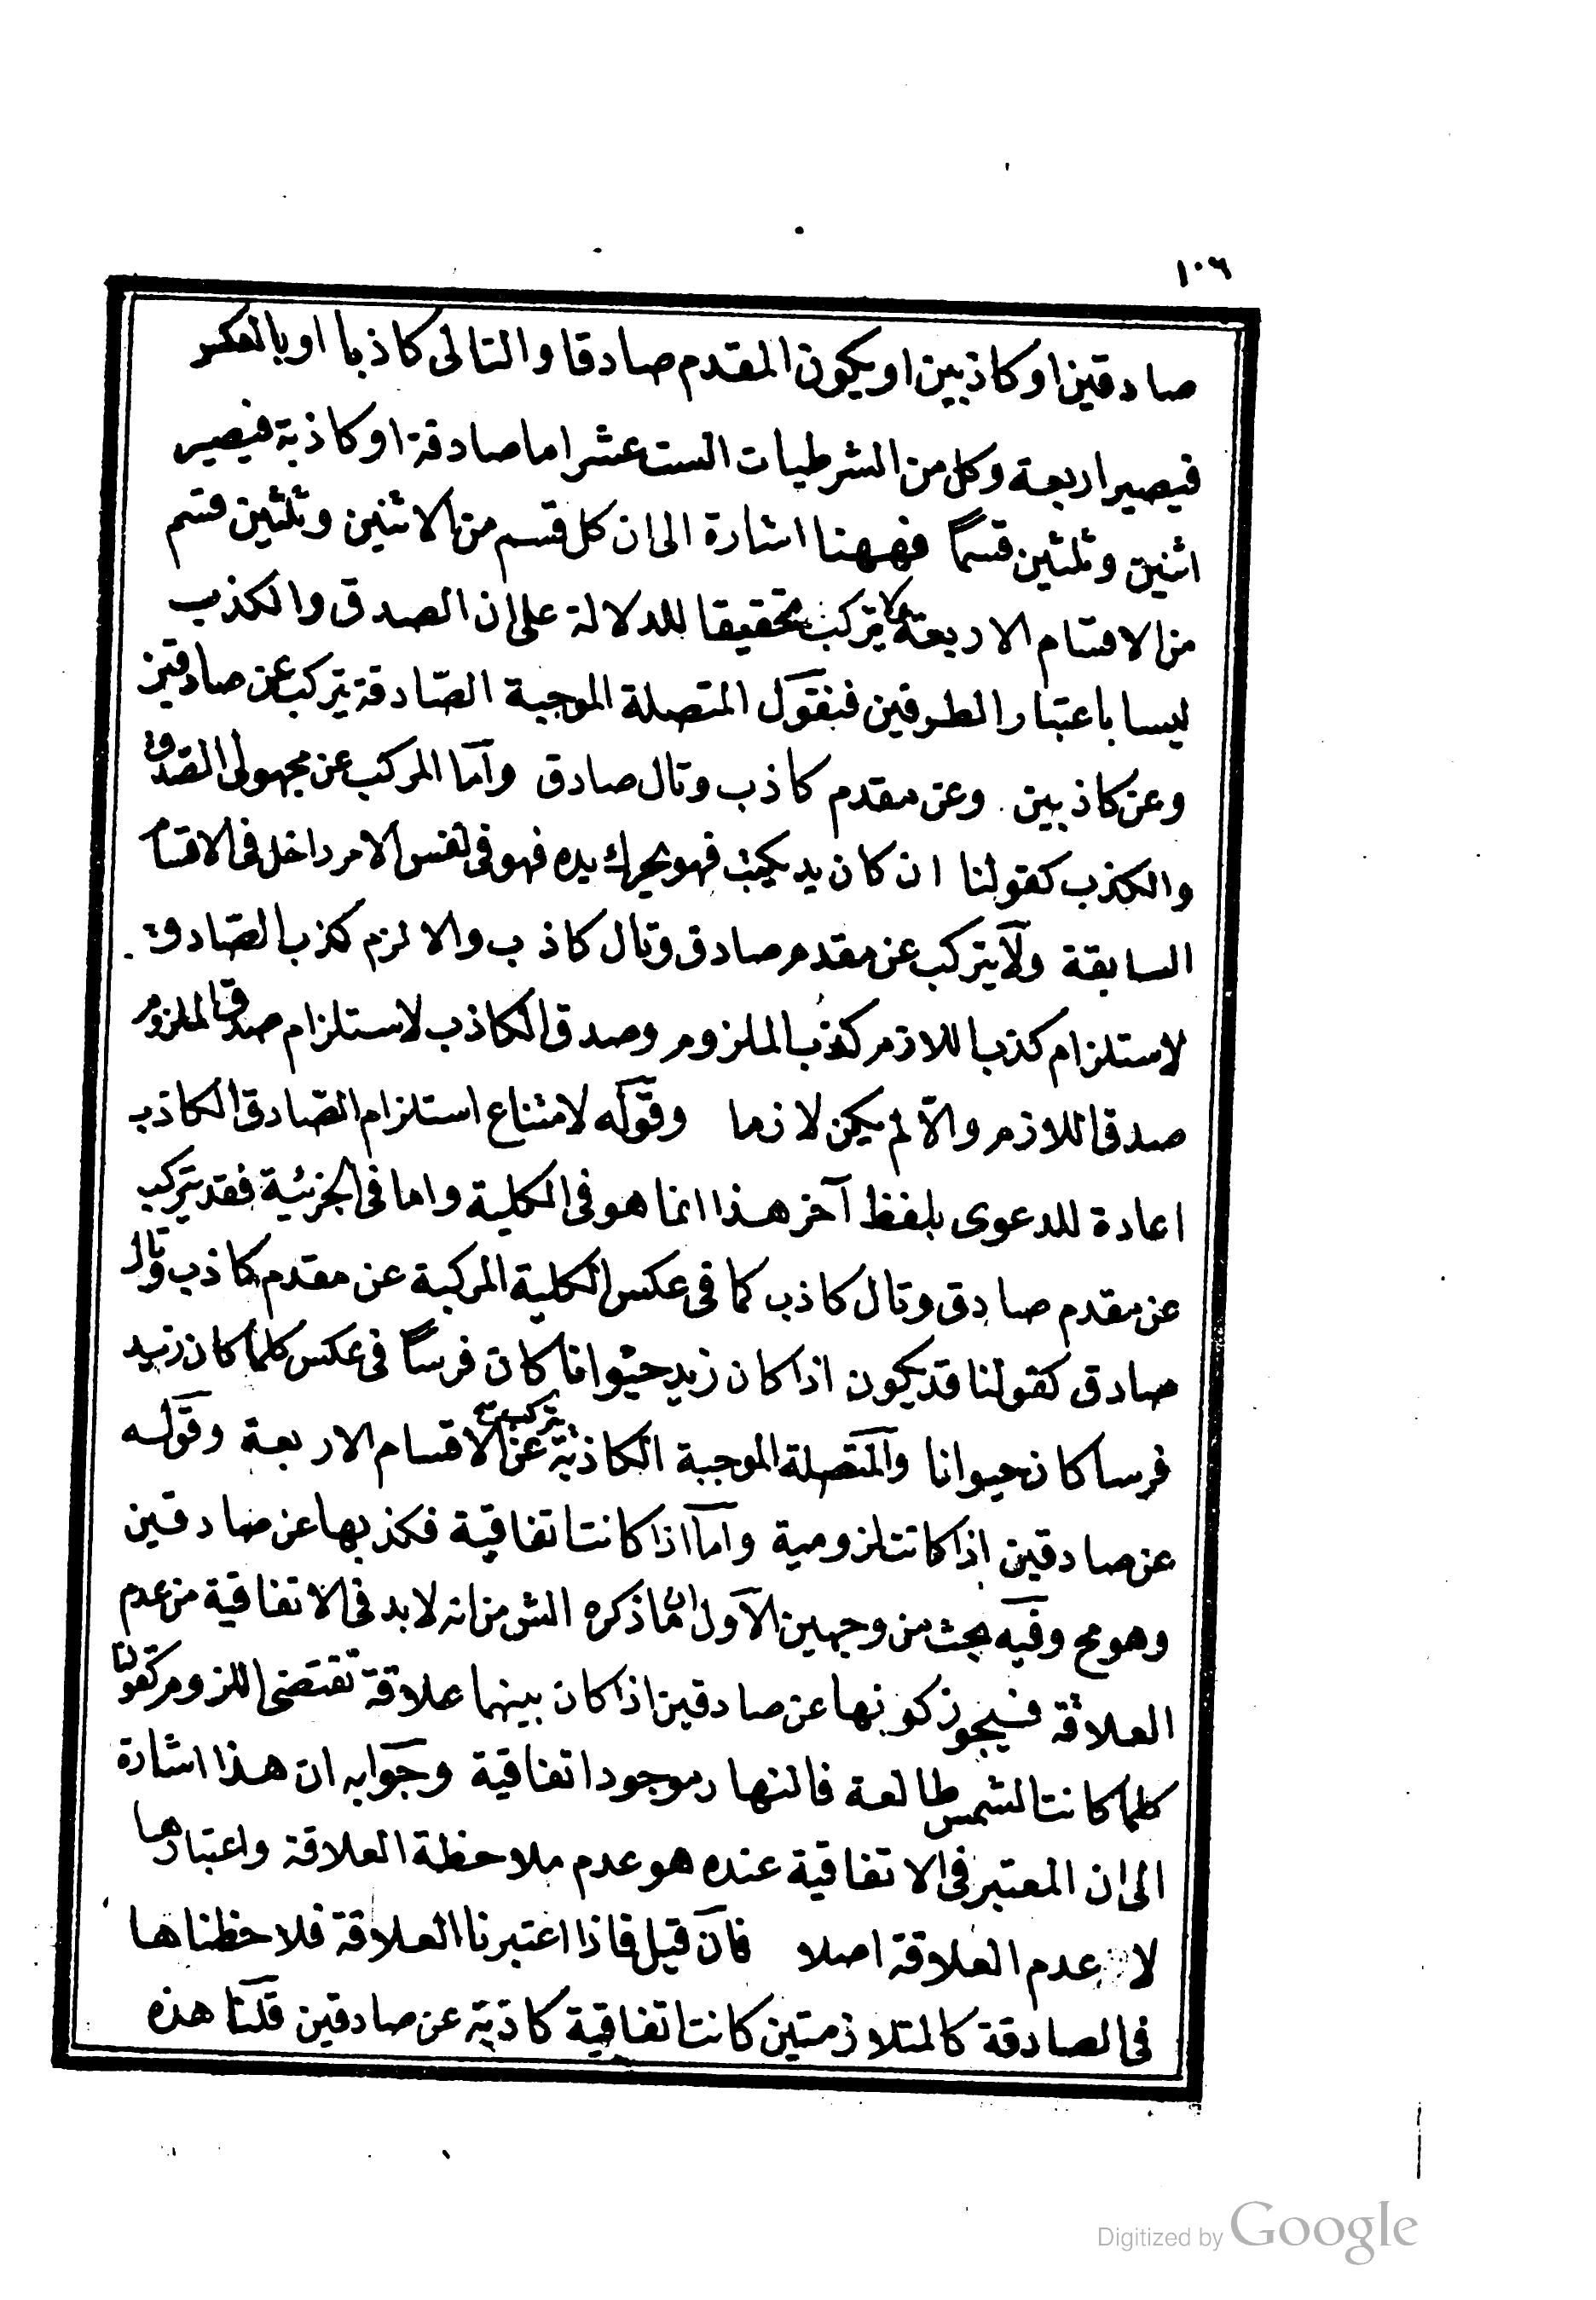 ١٠٦
صادقين او كاذبين او يكون المقدم صادقا والتالى كاذبا او بالعكس
فيصير اربعة وكل من الشرطيات الست عشر اما صادقة او كاذبة فيصير
اثنين وثلثين قسماً فههنا اشارة الى ان كل قسم من الاثنين وثلثين قسم
من الاقسام الاربعة يتركب تحقيقا للدلالة على ان الصدق والكذب
ليسا باعتبار الطرفين فنقول المتصلة الموجبة الصّادقة يتركب عن صادقين
وعن كاذبين وعن مقدم كاذب وتال صادق وآما المركب عن مجهولى الصدق
والكذب كقولنا ان كان زيد يكتب فهو يحرك يده فهو فى نفس الامر داخل فى الاقسام
السابقة ولا يتركب عن مقدم صادق وتال كاذب والا لزم كذب الصّادق
لاستلزام كذب اللازم كذب الملزوم وصدق الكاذب لاستلزام صدق الملزوم
صدق اللازم والاّ لم يكن لازما وقوله لامتناع استلزام الصّادق الكاذب
اعادة للدعوى بلفظ آخر هذا انما هو فى الكلية واما فى الجزئية فقد يتركب
عن مقدم صادق وتال كاذب كما فى عكس الكلية المركبة عن مقدم كاذب وتال
صادق كقولنا قد يكون اذا كان زيد حيوانا كان فرساً فى عكس كلما كان زيد
فرسا كان حيوانا والمتصلة الموجبة الكاذبة يتركب عن الاقسام الاربعة وقوله
عن صادقين اذا كانت لزومية وآما اذا كانت اتفاقية فكذبها عن صادقين
وهو مح وفيه بحث من وجهين الآول ان ما ذكره الش من انه لا بد فى الاتفاقية من عدم
العلاقة فيجوز كونها عن صادقين اذا كان بينهما علاقة تقتضى اللزوم كقولنا
كلما كانت الشمس طالعة فالنهار موجود اتفاقية وجوابه ان هذا اشارة
الى ان المعتبر فى الاتفاقية عنده هو عدم ملاحظة العلاقة واعتبارها
لا عدم العلاقة اصلا فآن قيل فاذا اعتبرنا العلاقة فلاحظناها
فى الصادقة كالمتلازمتين كانت اتفاقية كاذبة عن صادقين قلنا هذه
Digitized by Google